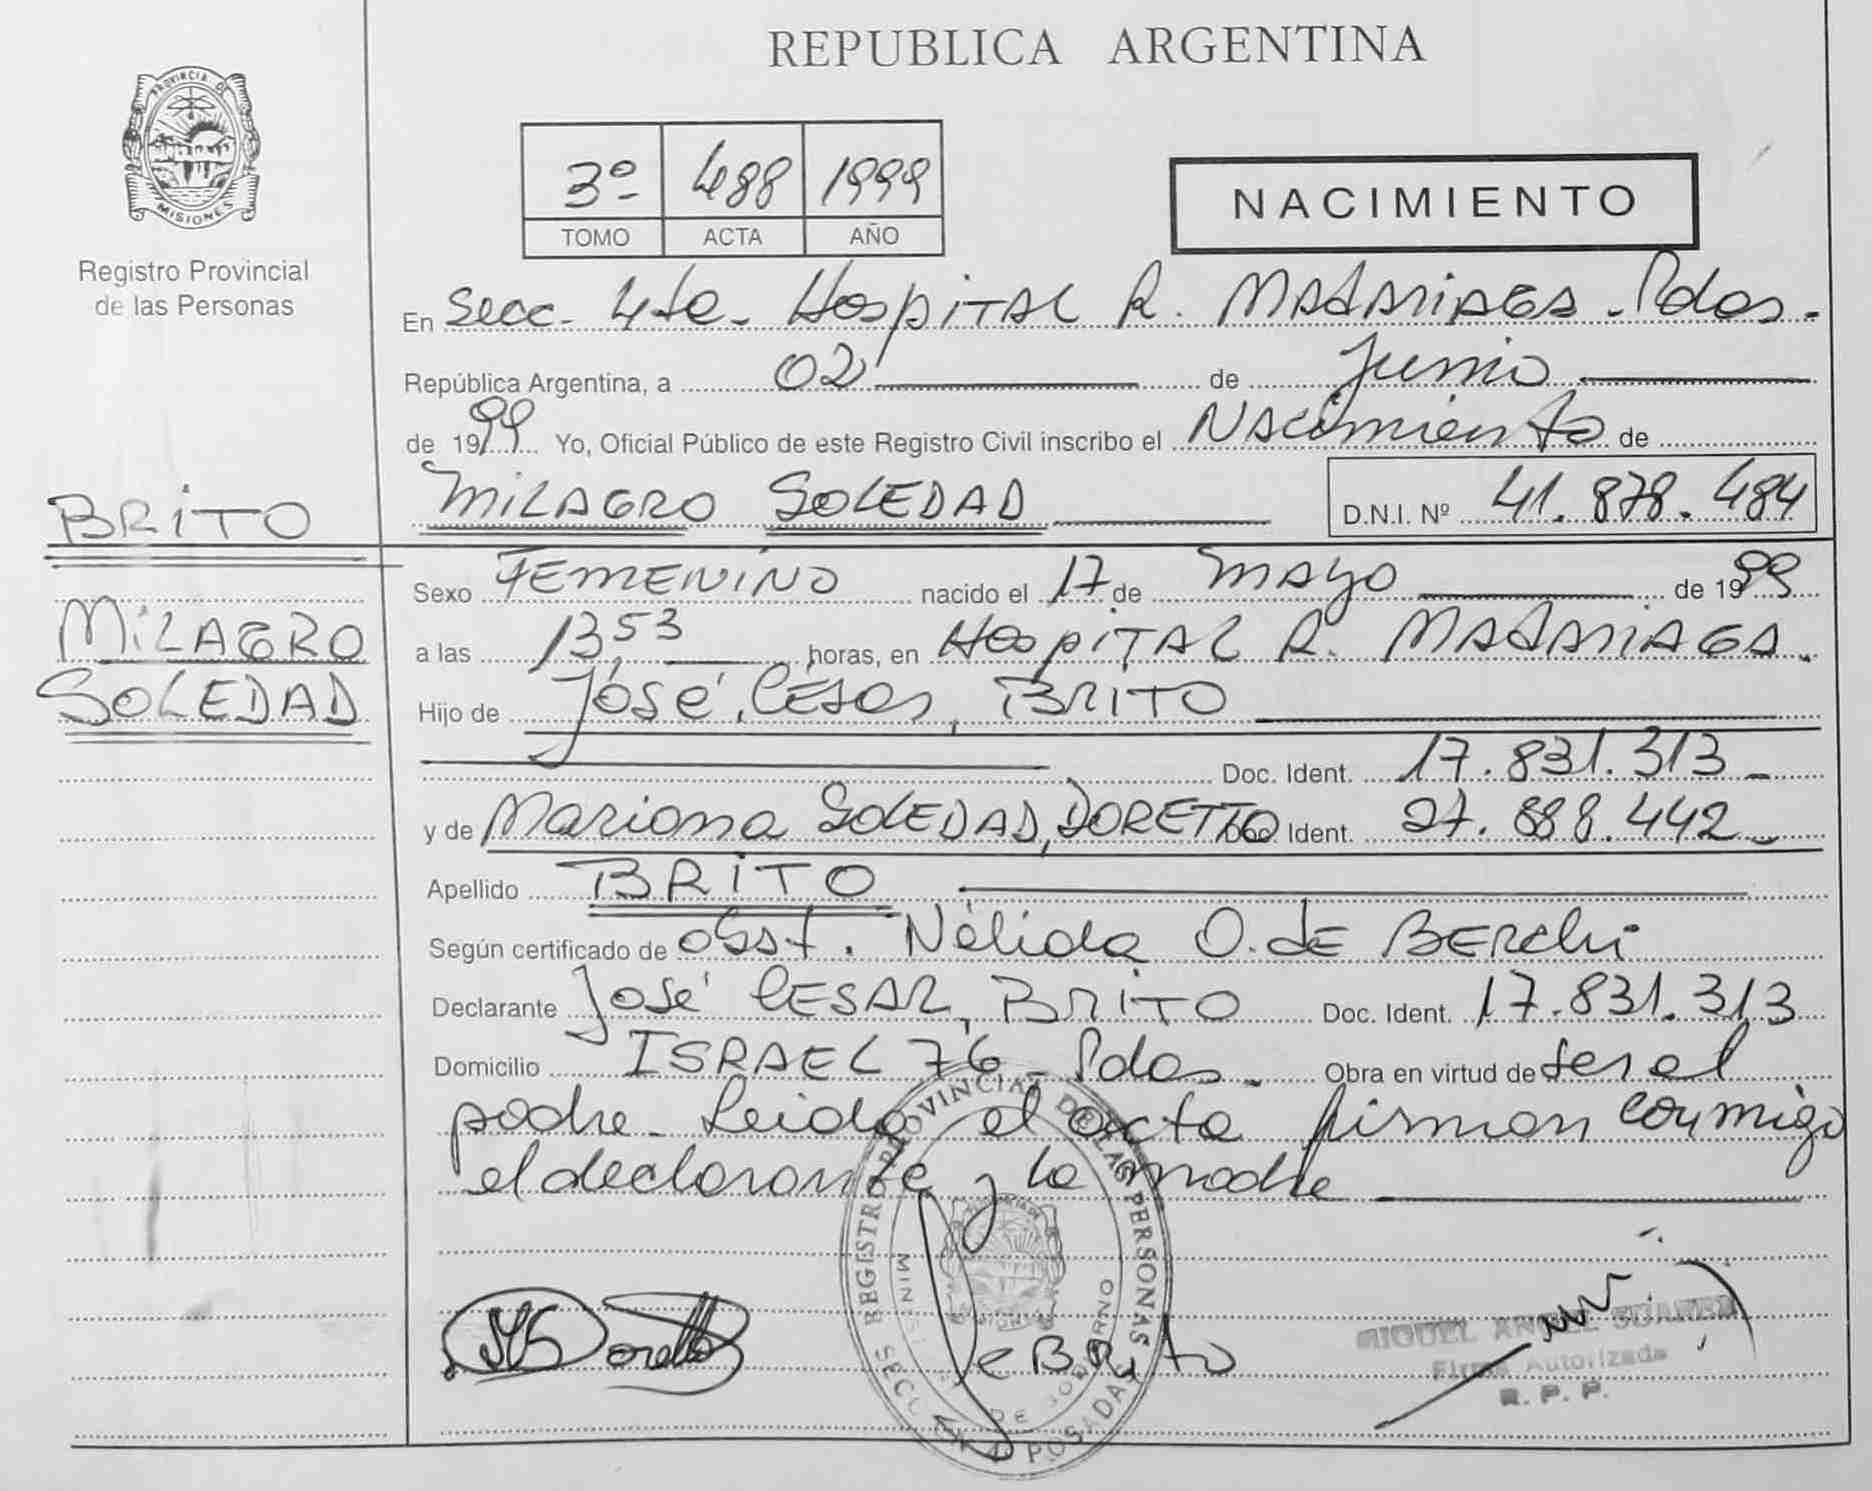 REPUBLICA ARGENTINA
PROVINCIA DE
MISIONES
Registro Provincial
de las Personas
3º 488 1999
TOMO ACTA AÑO
NACIMIENTO
En Secc. 4ta. Hospital R. MADARIAGA. Pdas.
República Argentina, a 02 de Junio
de 1999 Yo, Oficial Público de este Registro Civil inscribo el Nacimiento de
MILAGRO SOLEDAD D.N.I. Nº 41.878.484
BRITO
MILAGRO
SOLEDAD
Sexo FEMENINO nacido el 17 de mayo de 1999
a las 13,53 horas, en Hospital R. MADARIAGA.
Hijo de José César, BRITO
Doc. Ident. 17.831.313
y de Mariana SOLEDAD, DORETTO Doc. Ident. 27.888.442
Apellido BRITO
Según certificado de obst. Nélida O. de BERchi
Declarante José CESAR, BRITO Doc. Ident. 17.831.313
Domicilio ISRAEL 76 - Pdas. Obra en virtud de ser el
padre. Leida el acta firman conmigo
el declarante y la madre
REGISTRO PROVINCIAL DE LAS PERSONAS
DE GOBIERNO
POSADAS
Doretto
Brito
MIGUEL ANGEL SUAREZ
Firma Autorizada
R. P. P.